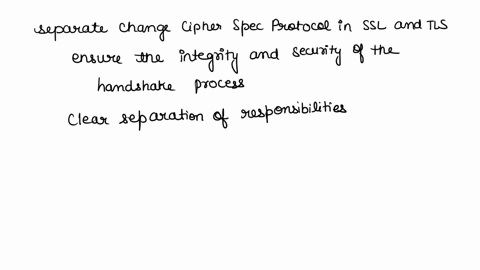 separate change Cipher Spec Protocol in SSL and TLS
ensure the integrity and security of the
handshake process
Clear separation of responsibilities